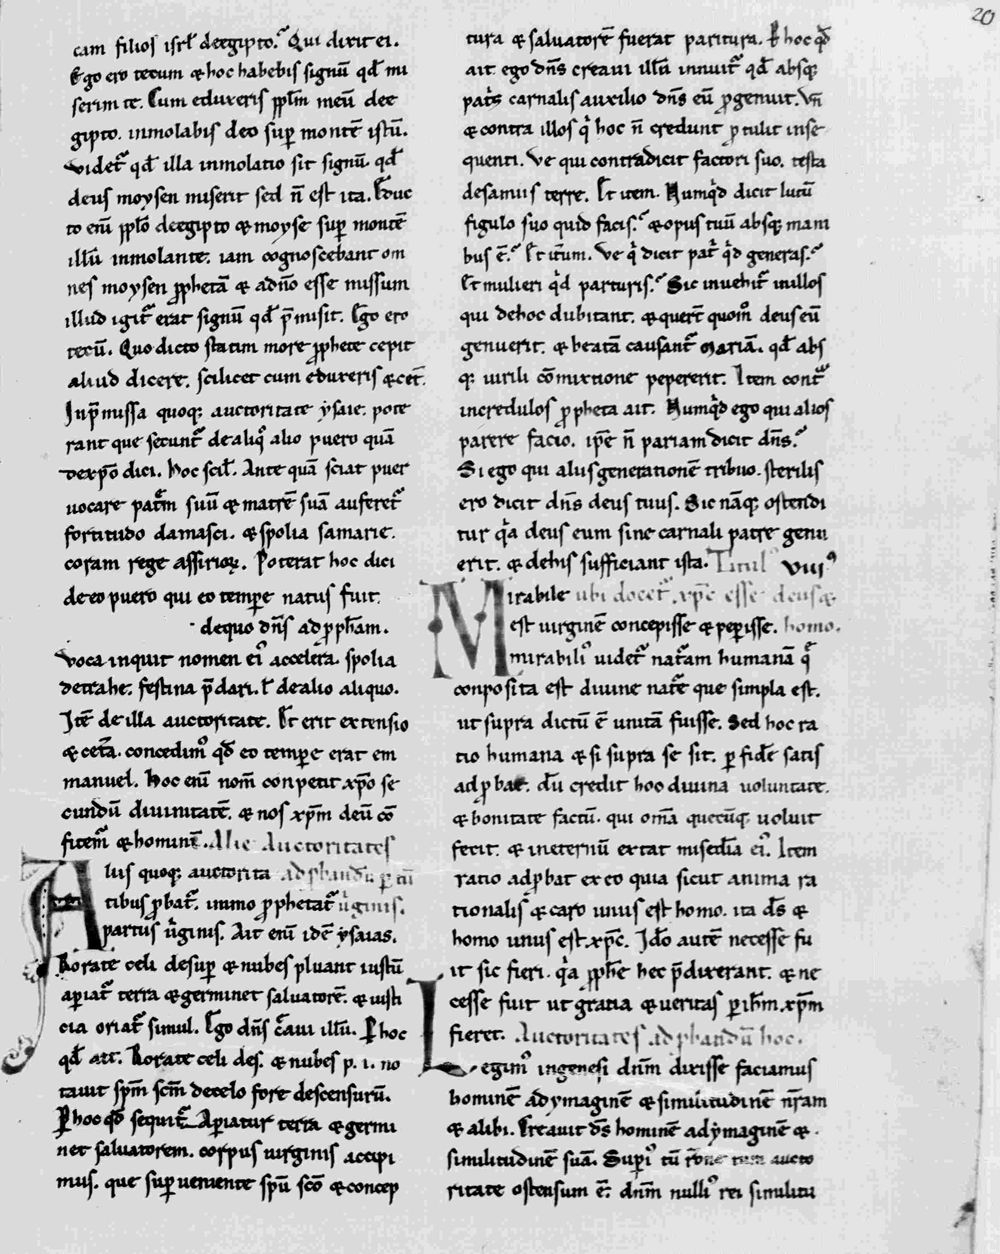 20
cam filios isrl̄ deegipto.᷎ Qui dixit ei.
Ego ero tecum ⁊ hoc habebis signū qd̄ mi
serim te. Cum eduxeris pplm̄ meū dee
gipto. inmolabis deo suꝑ montē istū.
videt᷑ qd̄ illa inmolatio sit signū. qd̄
deus moysen miserit sed n̄ est ita. Educ
to enī pplo̅ deegipto ⁊ moyse suꝑ montē
illū inmolante. iam cognoscebant om
nes moysen ꝓphetā ⁊ adn̄o esse missum
illud igit᷑ erat signū qd̄ p̄misit. Ego ero
tecū. Quo dicto statim more ꝓphete cepit
aliud dicere. scilicet cum eduxeris ⁊cet̄.
Inp̄missa quoqꝫ auctoritate ysaie. pote
rant que secunt᷑ dealiqͦ alio puero quā
dexp̄o dici. hoc scil̄. Ante quā sciat puer
uocare patr̄m suū ⁊ matrē suā auferet᷑
fortitudo damasci. ⁊ spolia samarie.
coram rege assirioꝝ. Poterat hoc dici
de eo puero qui eo temꝑe natus fuit.
dequo dn̄s ad ꝓpham̄.
voca inquit nomen ei᷒ accelera. spolia
detrahe. festina p̄dari. ł dealio aliquo.
Itē de illa auctoritate. Et erit extensio
⁊ ceta̅. concedim᷒ qd̄ eo temꝑe erat em
manuel. hoc enī nom̄ conpetit xp̄o se
cundū diuinitatē. ⁊ nos xp̄m deū cō
fitem᷑ ⁊ hominē. Alie Auctoritates
Aliis quoqꝫ auctorita adꝓbandū ꝑ tū
tibus ꝓbat᷑. immo ꝓphetat᷑ u̾ginis.
partus u̾ginis. Ait enī idē ysaias.
Rorate celi desuꝑ ⁊ nubes pluant iustū
aꝑiat᷑ terra ⁊ germinet saluatorē. ⁊ iusti
cia oriat᷑ simul. Ego dn̄s c̄aui illū. Per hoc
qd̄ ait. Rorate celi des. ⁊ nubes p. i. no
tauit spm̄ scm̄ decelo fore descensurū.
Per hoc qd̄ sequit᷑ Aꝑiatur terra ⁊ germi
net saluatorem. corpus uirginis accipi
mus. que suꝑ ueniente spū sc̄o ⁊ concep
tura ⁊ saluatorē fuerat paritura. Per hoc qd̄
ait ego dn̄s creaui illū innuit᷑ qd̄ absqꝫ
pat̾s carnalis auxilio dn̄s eū ꝓgenuit. Vn̄
⁊ contra illos qͥ hoc n̄ credunt ꝓtulit inse
quenti. Ve qui contradicit factori suo. testa
desamiis terre. Et item. Numqͥd dicit lutū
figulo suo quid facis.᷎ ⁊ opus tuū absqꝫ mani
bus ē.᷎ Et itm̄. Ve qͥ dicit pat̾ qͥd generas.᷎
Et mulieri qͥd parturis.᷎ Sic inuehit᷑ inillos
qui dehoc dubitant. ⁊ quer̄t quom̊ deus eū
genuerit. ⁊ beatā causant᷑ mariā. qd̄ abs
qꝫ uirili cōmixtione pepererit. Item contᷓ
incredulos ꝓpheta ait. Numqͥd ego qui alios
parere facio. ip̄e n̄ pariam dicit dn̄s.᷎
Si ego qui aliis generationē tribuo. sterilis
ero dicit dn̄s deus tuus. Sic nāqꝫ ostendi
tur qͥa deus eum sine carnali patre genu
erit. ⁊ dehis sufficiant ista. Titul᷒ viii᷒
Mirabile ubi docet᷑ xp̄c esse deus ⁊
est uirginē concepisse ⁊ peꝑisse. homo.
mirabili᷒ uidet᷑ natᷓam humanā qͤ
conposita est diuine nat̄e que simpla est.
ut supra dictū ē unitā fuisse. Sed hoc ra
tio humana ⁊ si supra se sit. ꝑ fidē satis
adꝓbat. dū credit hoc diuina uoluntate.
⁊ bonitate factū. qui om̄a quecūqꝫ uoluit
fecit. ⁊ ineternū extat misc̄dia ei᷒. Item
ratio adꝓbat ex eo quia sicut anima ra
tionalis ⁊ caro unus est homo. ita ds̄ ⁊
homo unus est xp̄c. Ido̅ autē necesse fu
it sic fieri. qͥa ꝓphe̅ hec p̄dixerant. ⁊ ne
cesse fuit ut gratia ⁊ ueritas ꝑ ih̄m xp̄m
fieret. Auctoritates adꝓbandū hoc.
Legim᷒ ingenesi dn̄m dixisse faciamus
hominē ad ymaginē ⁊ similitudinē nr̄am
⁊ alibi. Creauit ds̄ hominē ad ymaginē ⁊
similitudinē suā. Suꝑi᷒ tū ro̅ne tum aucto
ritate ostensum ē. dn̄m nulli᷒ rei similitu